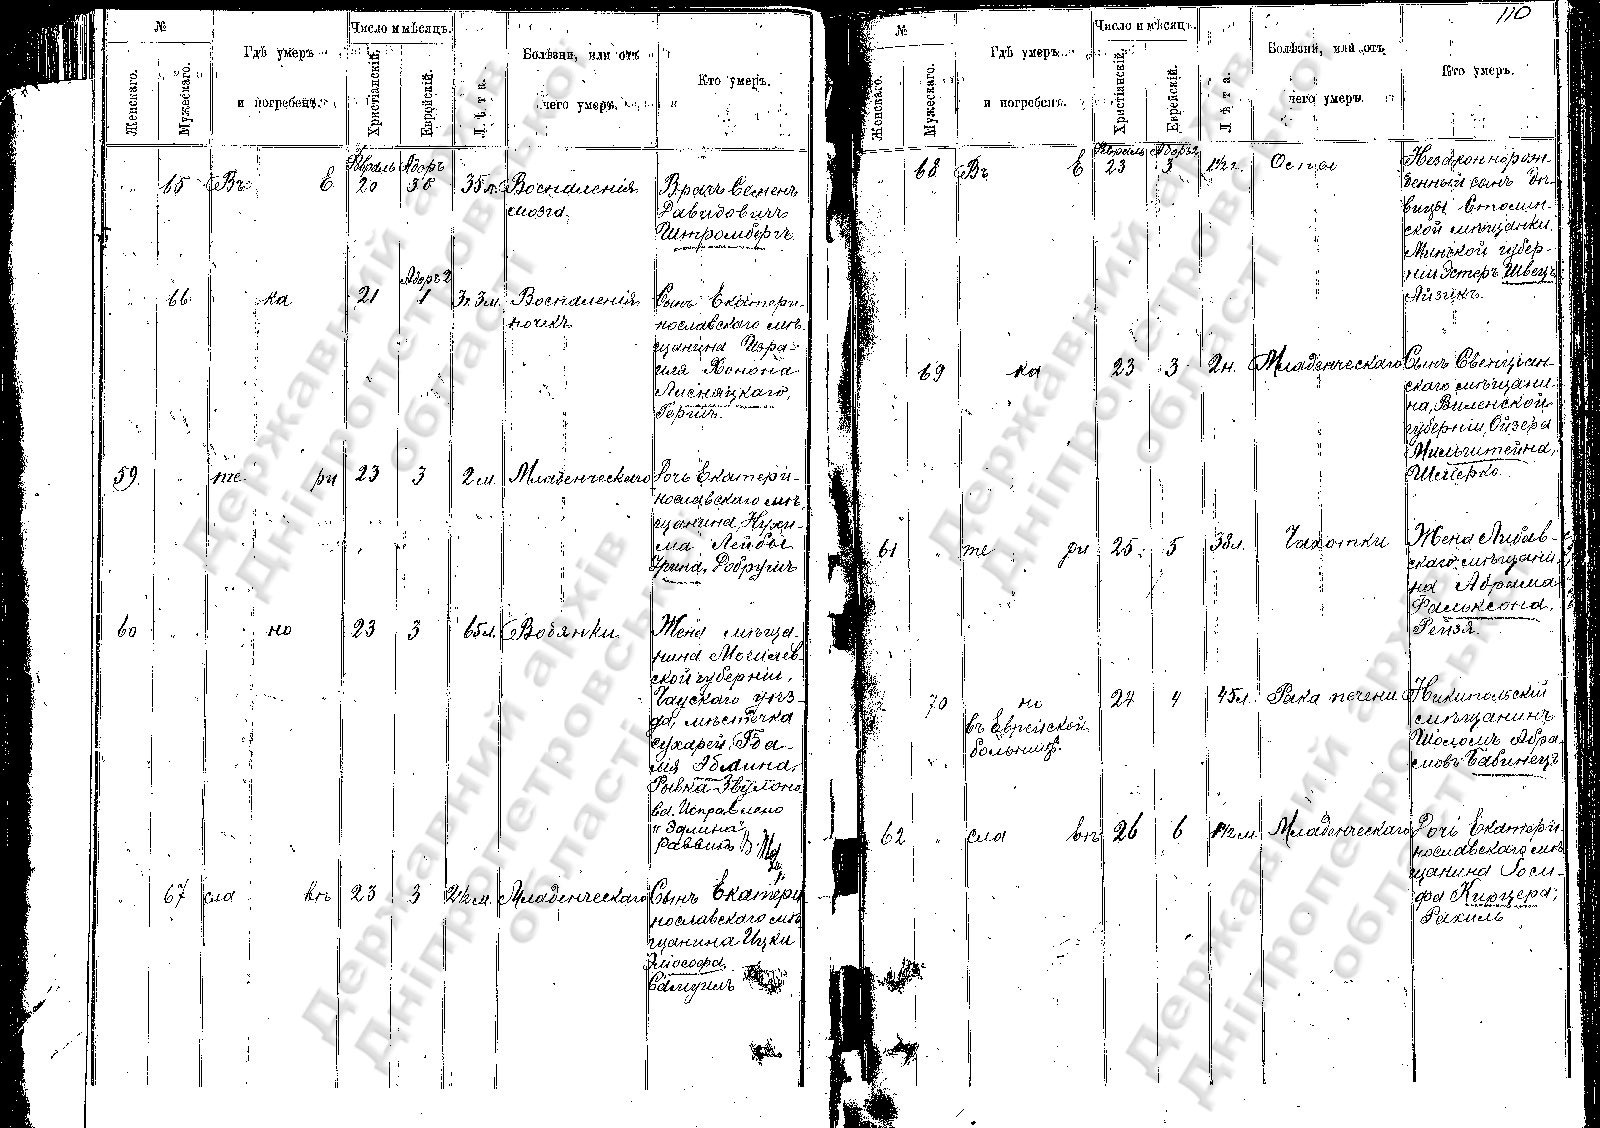 110
№
Женскаго.
Мужескаго.
Гдѣ умеръ
и погребенъ.
Число и мѣсяцъ.
Христіанскій.
Еврейскій.
Лѣта.
Болѣзнь, или отъ
чего умеръ.
Кто умеръ.
65 Въ Е Февраль 20 Адоръ 30 35 л. Воспаленія
мозга.
Врачъ Семенъ
Давидовичъ
Штромбергъ
66 ка 21 Адоръ 2 1 3г. 3м. Воспаленія
почекъ
Сынъ Екатери-
нославскаго мѣ-
щанина Изра-
иля Хонона
Лисняцкаго,
Гершъ.
59 те ри 23 3 2 м. Младенческаго
Дочь Екатери-
нославскаго мѣ-
щанина Нухи-
ма Лейбы
Грина, Добрушъ
60 но 23 3 65 л. Водянки
Жена мѣща-
нина Могилев-
ской губерніи,
Чаускаго уѣз-
да, мѣстечка
Сухарей,
Рывка
ва. Исправлено
раввинъ
67 сла вѣ 23 3 2½ м. Младенческаго
Сынъ Екатери
нославскаго мѣ-
щанина Ицки
Самуилъ
№
Женскаго.
Мужескаго.
Гдѣ умеръ
и погребенъ.
Число и мѣсяцъ.
Христіанскій.
Еврейскій.
Лѣта.
Болѣзнь, или отъ
чего умеръ.
Кто умеръ.
68 Въ Е Февраль 23 Адоръ 2 3 1½ г. Оспы
Незаконнорож-
денный сынъ дѣ-
вицы Столин-
ской мѣщанки,
Минской губер-
ніи Эстеръ Швецъ
Айзикъ.
69 ка 23 3 2 н. Младенческаго
Сынъ Свенцян-
скаго мѣщани-
на, Виленской
губерніи, Ойзера
Мильштейна,
Шмерко.
61 те ри 25 5 38 л. Чахотки
Жена Либав-
скаго мѣщани-
на Абрама
Фальксона,
Рейзя.
70 но
въ Еврейской
больницѣ.
24 4 45 л. Рака печени
Никипольскій
мѣщанинъ
Шоломъ Абра
мовъ Бабинецъ
62 сла вѣ 26 6 1½ м. Младенческаго
Дочь Екатери
нославскаго мѣ
щанина Іоси-
фа Кирцера,
Рахиль
Державний архів
Дніпропетровської
області
Державний архів
Дніпропетровської
області
Державний архів
Дніпропетровської
області
Державний архів
Дніпропетровської
області